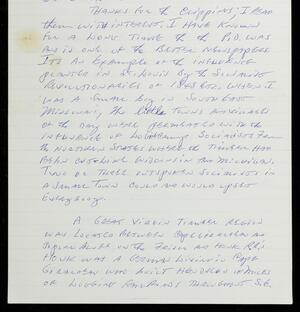 THANKS FOR THE CLIPPINGS, I READ
THEM WITH INTEREST. I HAVE KNOWN
FOR A LONG TIME THAT THE P.D. WAS
AND IS ONE OF THE BETTER NEWSPAPERS
ITS AN EXAMPLE OF THE INFLUENCE
PLANTED IN ST. LOUIS BY THE SOCIALIST
REVOLUTIONARIES OF 1848 ETC. WHEN I
WAS A SMALL BOY IN SOUTH EAST
MISSOURI, THE LITTLE TOWNS AND VILLAGES
OF THE DAY WERE PERMEATED WITH THE
INFLUENCE OF SOCIALISTS FROM
THE NORTHERN STATES WHERE THE TIMBER HAD
BEEN CUT LIKE WISCONSIN AND MICHIGAN.
TWO OR THREE OUTSPOKEN SOCIALISTS IN
A SMALL TOWN COULD AND WOULD UPSET
EVERYBODY.
A GREAT VIRGIN TIMBER REGION
WAS LOCATED BETWEEN CAPE GIRARDEAU AND
POPLAR BLUFF ON THE FRISCO AND HOUK RR'S
HOUK WAS A GERMAN LIVING IN CAPE
GIRARDEAU WHO BUILT HUNDREDS OF MILES
OF LOGGING RAILROADS THROUGHOUT S.E.